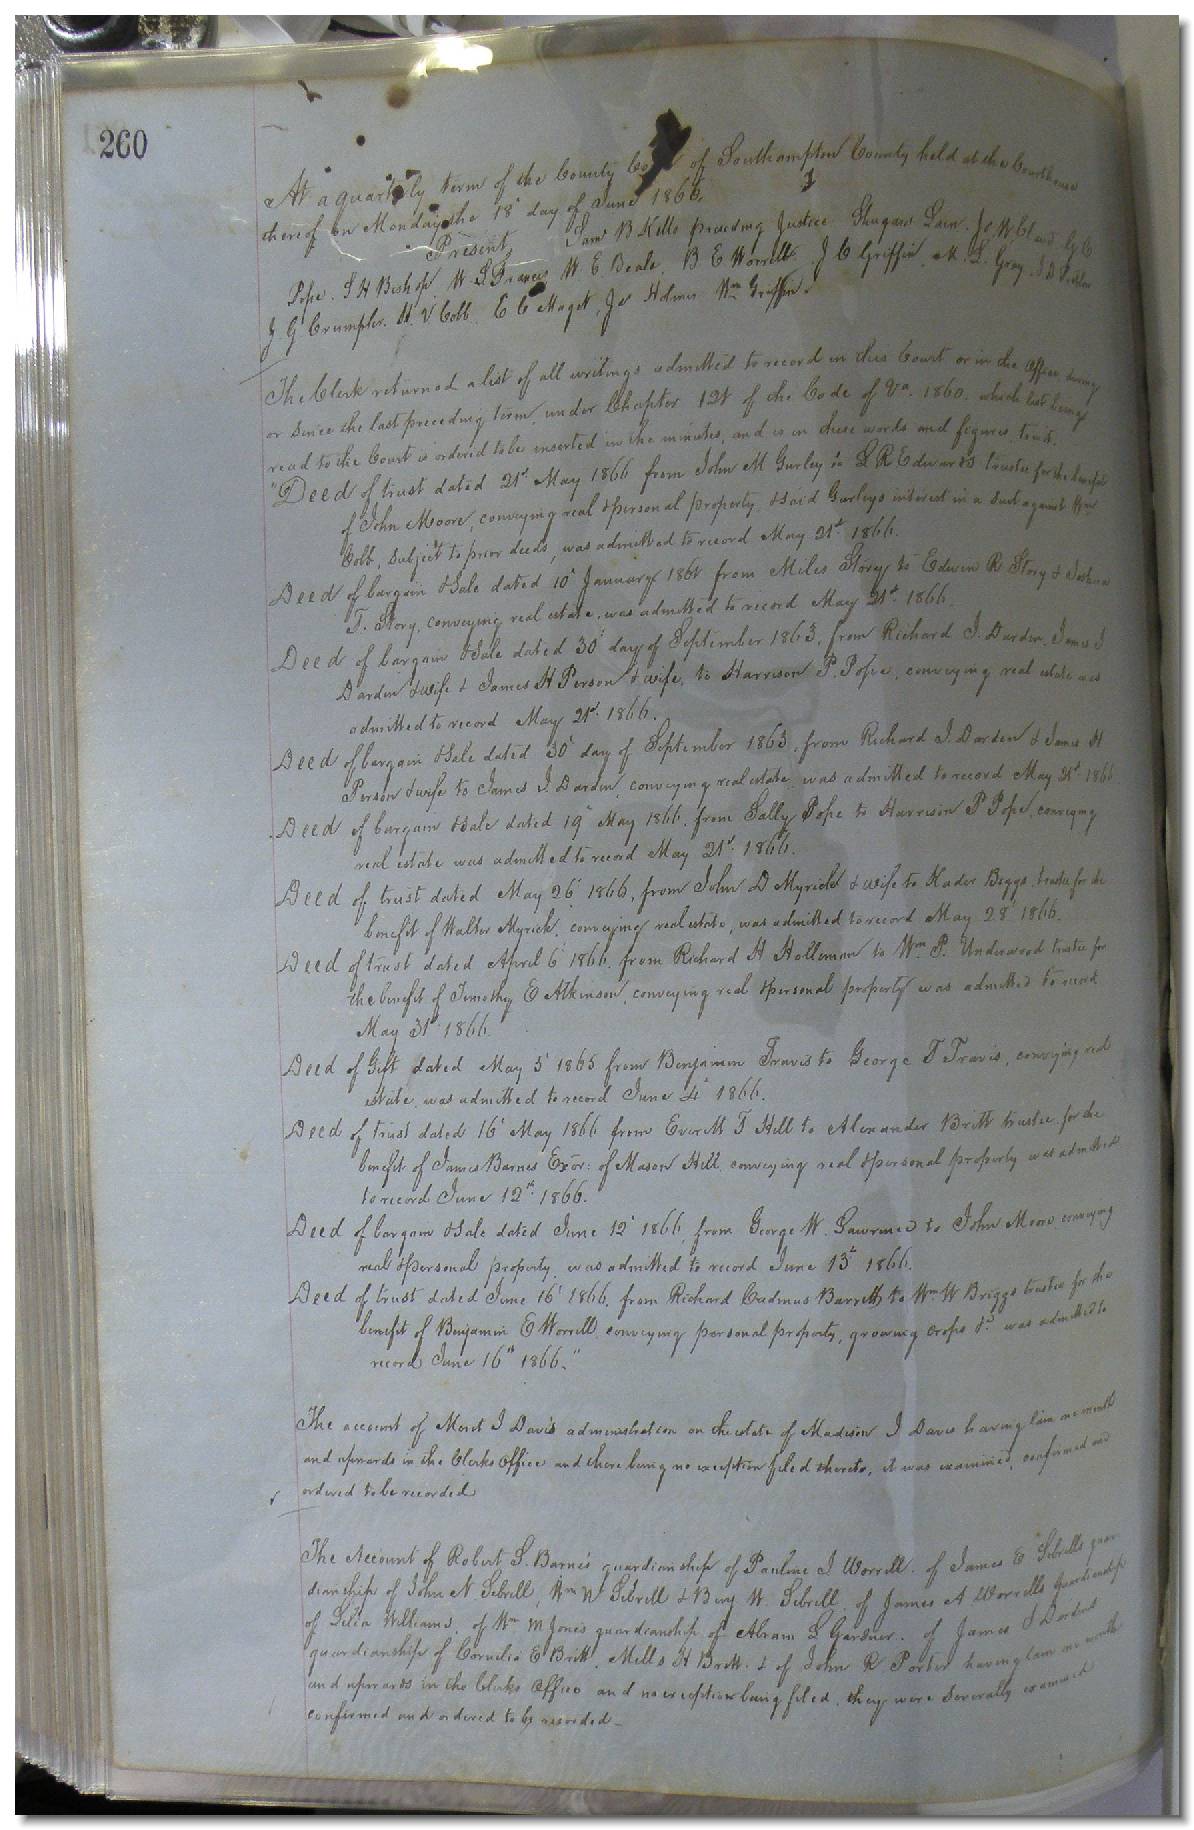 260
At a quarterly term of the County Co of Southampton County held at the Courthouse
thereof on Monday the 18 day of June 1866.
Present Saml B Kello presiding Justice Shugars Lain.
Pope. S H Bishop W. S. Francis W E Beale. B E Worrell. J C Griffin L. Gray
J G Crumpler. H. V Cobb. E C Maget, Js Holmes Wm Griffin.
The Clerk returned a list of all writings admitted to record in this Court or in the Office during
or since the last preceding term, under Chapter 121 of the Code of Va. 1860. which list being
read to the Court is ordered to be inserted in the minutes, and is in these words and figures, towit.
"Deed of trust dated 21st May 1866 from John M Gurley to L R Edwards trustee for the benefit
of John Moore, conveying real & personal property, & said Gurleys interest in a suit against Wm
Cobb, subject to prior deeds, was admitted to record May 21st 1866.
Deed of bargain & Sale dated 10 January from Miles Story to Edwin R Story & Joshua
T. Story, conveying real estate, was admitted to record May 21st 1866.
Deed of bargain & Sale dated 30 day of September 1863, from Richard J. Darden, James J
Darden & wife & James H Person & wife, to Harrison P. Pope, conveying real estate was
admitted to record May 21st 1866.
Deed of bargain & Sale dated 30 day of September 1863, from Richard J. Darden & James H
Person & wife to James J. Darden, conveying real estate was admitted to record May 21st 1866
Deed of bargain & Sale dated 19 May 1866. from Sally Pope to Harrison P Pope, conveying
real estate was admitted to record May 21st 1866.
Deed of trust dated May 26 1866, from John D Myrick & wife to Kader Biggs, trustee for the
benefit of Walter Myrick, conveying real estate, was admitted to record May 28 1866.
Deed of trust dated April 6 1866. from Richard H Holleman to Wm P. Underwood trustee for
the benefit of Timothy E Atkinson, conveying real & personal property was admitted to record
May 31st 1866.
Deed of Gift dated May 5 1865 from Benjamin Travis to George T Travis, conveying real
estate, was admitted to record June 4 1866.
Deed of trust dated 16 May 1866 from Everett T Hill to Alexander Britt trustee, for the
benefit of James Barnes Exor: of Mason Hill, conveying real & personal property was admitted
to record June 12th 1866.
Deed of bargain & Sale dated June 12 1866, from George W. Lawrence to John Moore, conveying
real & personal property, was admitted to record June 13th 1866.
Deed of trust dated June 16 1866. from Richard Cadmus Barrett to Wm W Briggs trustee for the
benefit of Benjamin E Worrell, conveying personal property, growing crops &c. was admitted to
record June 16th 1866."
The account of J Davis administration on the estate of Madison J Davis having lain one month
and upwards in the Clerks Office and there being no exception filed thereto, it was examined, confirmed and
ordered to be recorded
The Account of Robert S. Barnes guardianship of Pauline J Worrell. of James E Sebrells guar
dianship of John N Sebrell, Wm W Sebrell & Benj W. Sebrell, of James A Worrells guardianship
of Williams, of Wm M Jones guardianship of Abram L Gardner. of James J Dardens
guardianship of Cornelia E Britt, Mills H Britt. & of John R Porter having lain one month
and upwards in the Clerks Office and no exception being filed, they were severally examined
confirmed and ordered to be recorded